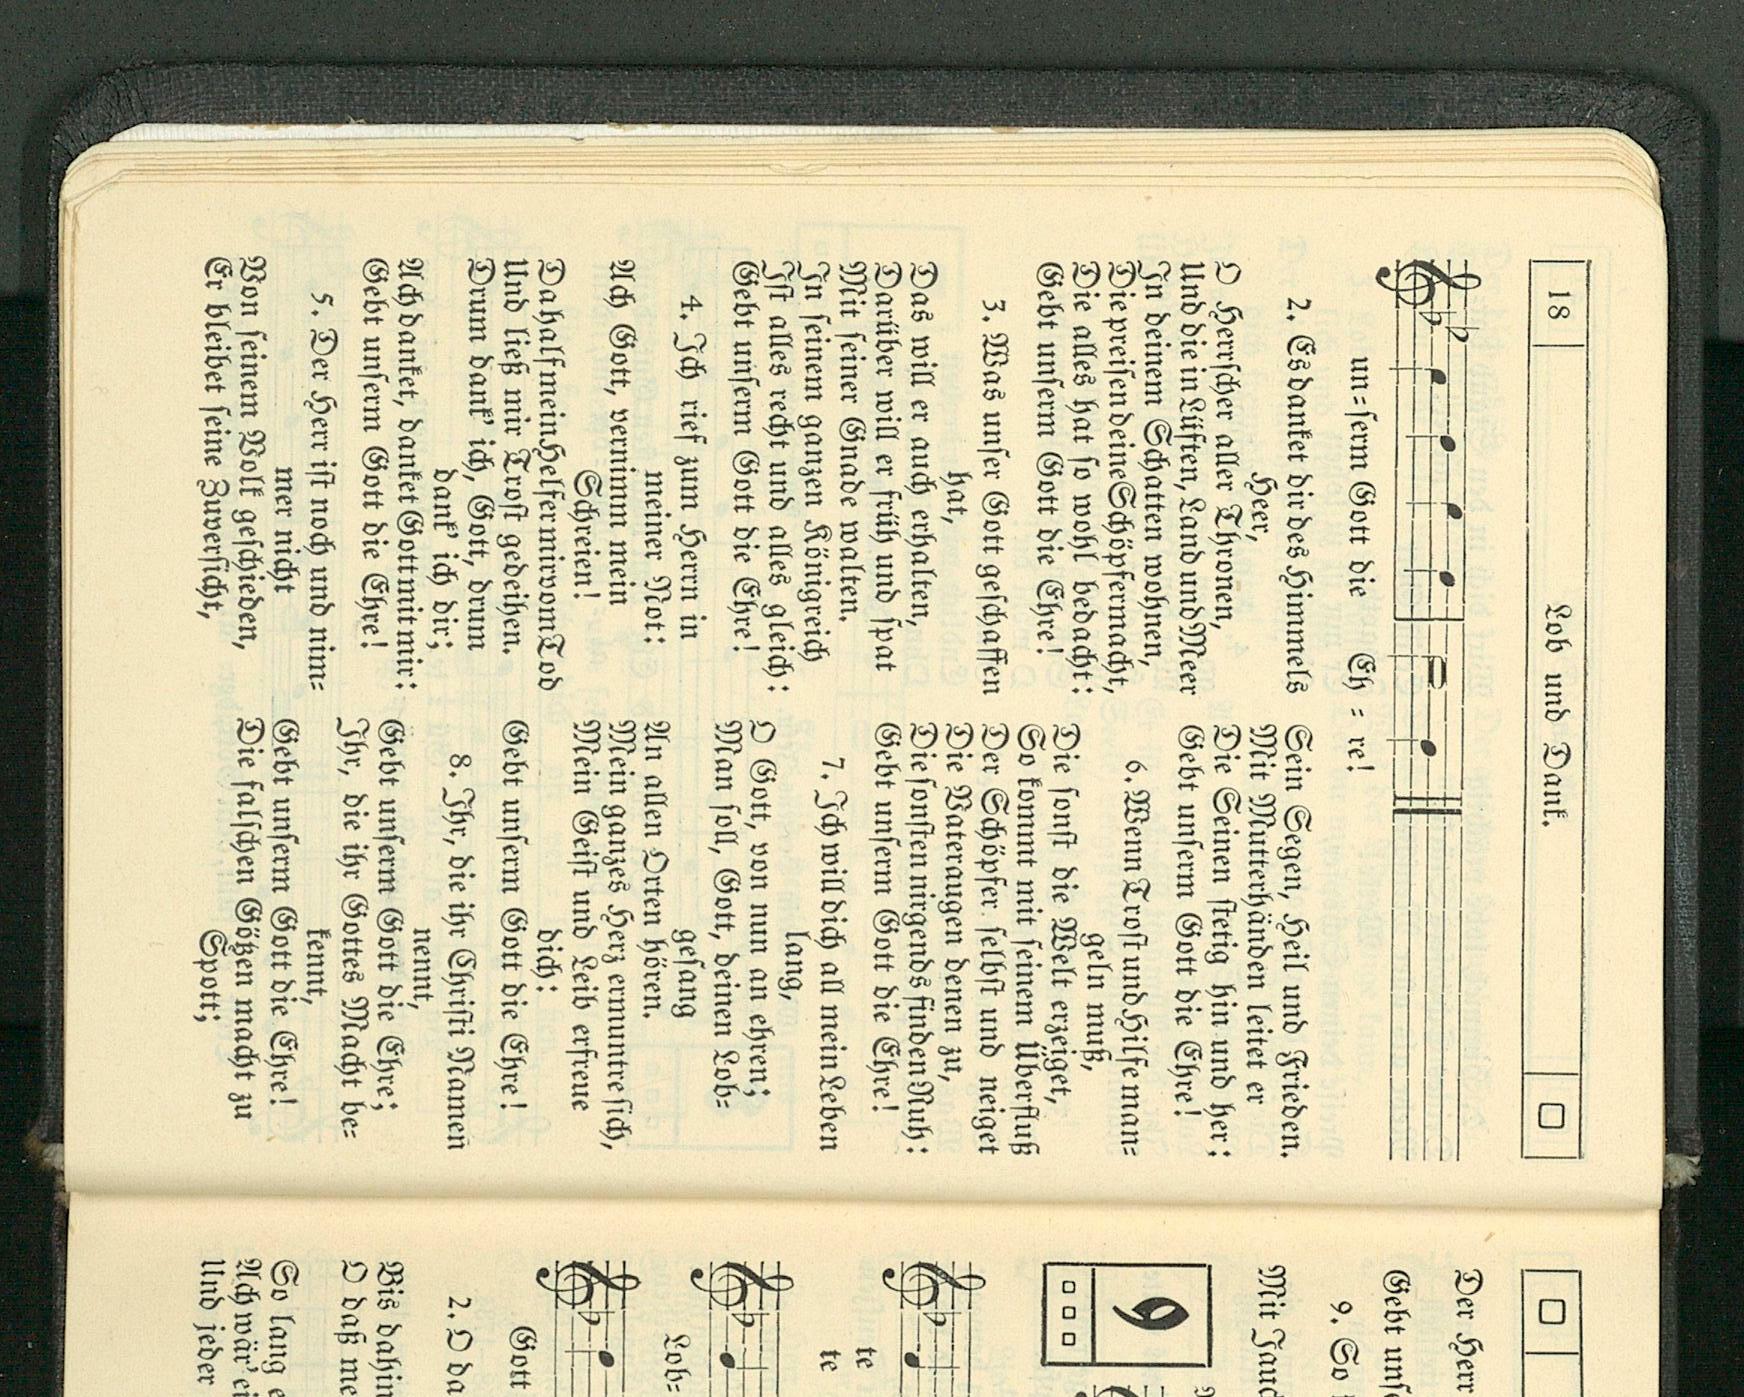 18
Lob und Dank.
un=serm Gott die Eh = re!
2. Es danket dir des Himmels
Heer,
O Herrscher aller Thronen,
Und die in Lüften, Land und Meer
In deinem Schatten wohnen,
Die preisen deine Schöpfermacht,
Die alles hat so wohl bedacht:
Gebt unserm Gott die Ehre!
3. Was unser Gott geschaffen
hat,
Das will er auch erhalten,
Darüber will er früh und spat
Mit seiner Gnade walten.
In seinem ganzen Königreich
Ist alles recht und alles gleich:
Gebt unserm Gott die Ehre!
4. Ich rief zum Herrn in
meiner Not:
Ach Gott, vernimm mein
Schreien!
Da half mein Helfer mir vom Tod
Und ließ mir Trost gedeihen.
Drum dank' ich, Gott, drum
dank' ich dir;
Ach danket, danket Gott mit mir:
Gebt unserm Gott die Ehre!
5. Der Herr ist noch und nim=
mer nicht
Von seinem Volk geschieden,
Er bleibet seine Zuversicht,
Sein Segen, Heil und Frieden.
Mit Mutterhänden leitet er
Die Seinen stetig hin und her:
Gebt unserm Gott die Ehre!
6. Wenn Trost und Hilfe man=
geln muß,
Die sonst die Welt erzeiget,
So kommt mit seinem Überfluß
Der Schöpfer selbst und neiget
Die Vateraugen denen zu,
Die sonsten nirgends finden Ruh:
Gebt unserm Gott die Ehre!
7. Ich will dich all mein Leben
lang,
O Gott, von nun an ehren;
Man soll, Gott, deinen Lob=
gesang
An allen Orten hören.
Mein ganzes Herz ermuntre sich,
Mein Geist und Leib erfreue
dich:
Gebt unserm Gott die Ehre!
8. Ihr, die ihr Christi Namen
nennt,
Gebt unserm Gott die Ehre;
Ihr, die ihr Gottes Macht be=
kennt,
Gebt unserm Gott die Ehre!
Die falschen Götzen macht zu
Spott;
Der Herr
Gebt uns
9. So
Mit Jauc
9
te
te
Lob=
Gott
2. O da
Bis dahin
O daß me
So lang e
Ach wär' ei
Und jeder